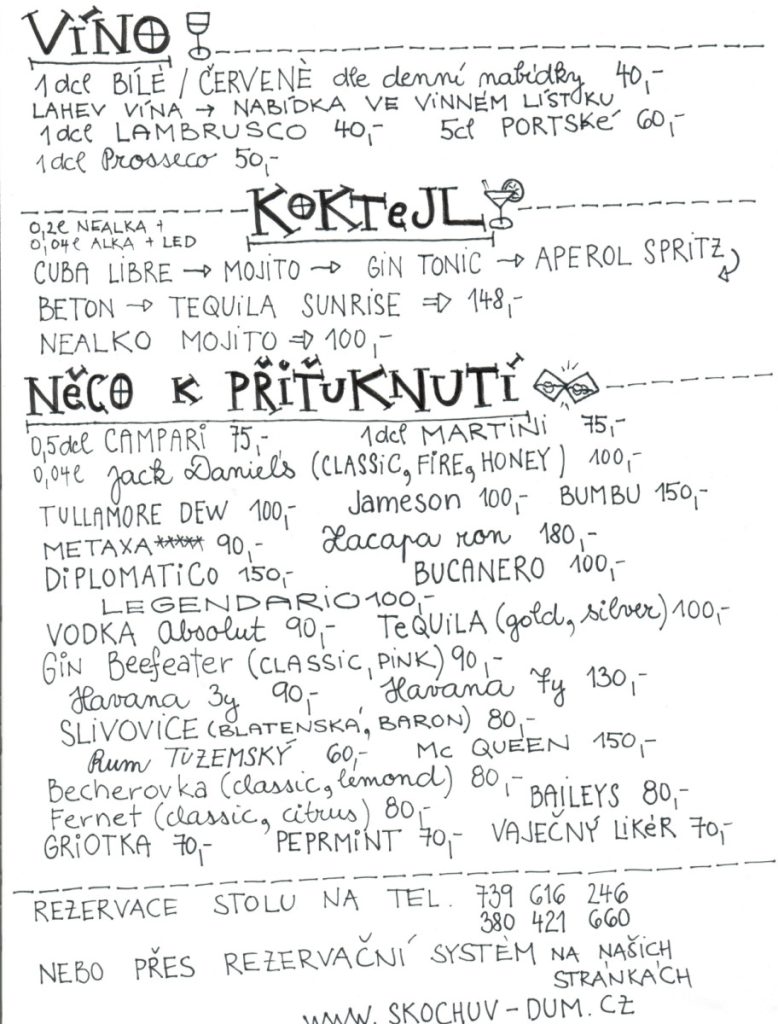 VÍNO
1dcl BÍLÉ / ČERVENÉ dle denní nabídky 40,-
LAHEV VÍNA → NABÍDKA VE VINNÉM LÍSTUKU
1dcl LAMBRUSCO 40,- 5cl PORTSKÉ 60,-
1dcl Prosseco 50,-
KOKTeJL
0,2l NEALKA +
0,04l ALKA + LED
CUBA LIBRE → MOJITO → GIN TONIC → APEROL SPRITZ
BETON → TEQUILA SUNRISE ⇒ 148,-
NEALKO MOJITO ⇒ 100,-
NĚCO K PŘIŤUKNUTÍ
0,5dcl CAMPARI 75,- 1dcl MARTINI 75,-
0,04l Jack Daniel's (CLASSIC, FIRE, HONEY) 100,-
TULLAMORE DEW 100,- Jameson 100,- BUMBU 150,-
METAXA***** 90,- Zacapa ron 180,-
DIPLOMATICO 150,- BUCANERO 100,-
LEGENDARIO 100,-
VODKA Absolut 90,- TeQUILA (gold, silver) 100,-
Gin Beefeater (CLASSIC, PINK) 90,-
Havana 3y 90,- Havana 7y 130,-
SLIVOVICE (BLATENSKÁ, BARON) 80,-
Rum TUZEMSKÝ 60,- Mc QUEEN 150,-
Becherovka (classic, lemond) 80,-
BAILEYS 80,-
Fernet (classic, citrus) 80,-
GRIOTKA 70,- PEPRMINT 70,- VAJEČNÝ LIKÉR 70,-
REZERVACE STOLU NA TEL. 739 616 246
380 421 660
NEBO PŘES REZERVAČNÍ SYSTÉM NA NAŠICH
STRÁNKÁCH
www.SKOCHUV-DUM.CZ